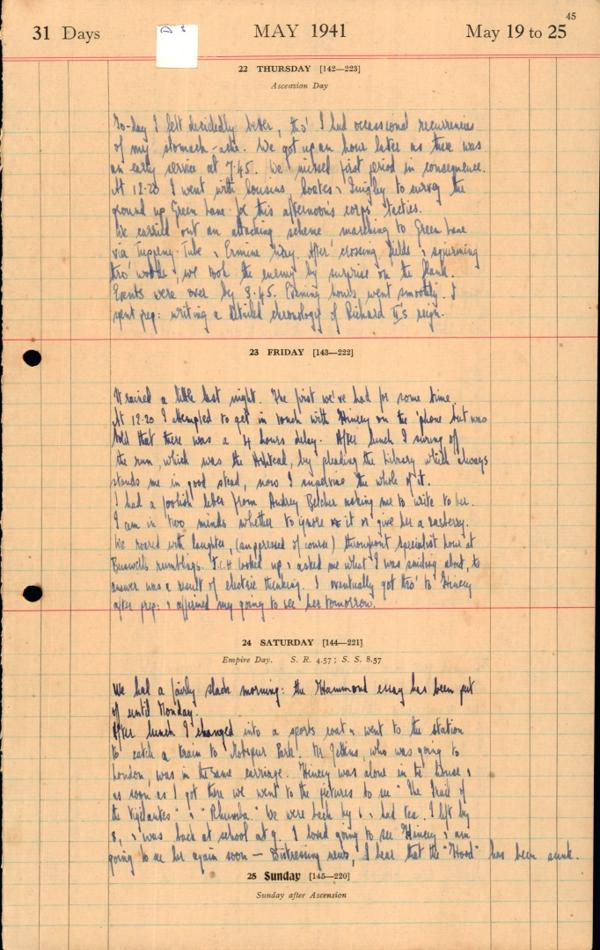 45
31 Days MAY 1941 May 19 to 25
22 THURSDAY [142—223]
Ascension Day
To-day I felt decidedly better, tho' I had occassional recurrencies
of my stomach-ache. We got up an hour later as there was
an early service at 7.45. We missed first period in consequence.
At 12-20 I went with Cousins, Coates & Quigley to survey the
ground up Green Lane for this afternoon's corps' tactics.
We carried out an attacking scheme marching to Green Lane
via Tuppeny-Tube & Ermine Way. After crossing fields & squirming
thro' woods, we took the enemy by surprise on the flank.
Events were over by 3.45. Evening hours went smoothly. I
spent prep: writing a detailed chronology of Richard II's reign.
23 FRIDAY [143—222]
It rained a little last night. The first we've had for some time.
At 12-20 I attempted to get in touch with Hincey on the 'phone but was
told that there was a 4 hours delay. After lunch I swung off
the run, which was the Ashtead, by pleading the Library which always
stands me in good stead, now I supervise the whole of it.
I had a foolish letter from Audrey Belcher asking me to write to her.
I am in two minds whether to ignore it or give her a rasberry.
We roared with laughter, (suppressed of course) throughout specialist hour at
rumblings. looked up & asked me what I was smiling about, to
answer was a result of electric thinking. I eventually got thro' to Hincey
after prep: & affirmed my going to see her tomorrow.
24 SATURDAY [144—221]
Empire Day. S. R. 4.57; S. S. 8.57
We had a fairly slack morning: the Hammond essay has been put
off until Monday.
After lunch I changed into a sports coat & went to the station
to catch a train to Motspur Park. Mr. who was going to
London, was in the same carriage. Hincey was alone in the house &
as soon as I got there we went to the pictures to see "The Trail of
the Vigilantes" & "Rhumba". We were back by 6 & had tea. I left by
8, & was back at school at 9. I loved going to see Hincey & am
going to see her again soon — Distressing news, I hear that the "Hood" has been sunk.
25 Sunday [145—220]
Sunday after Ascension